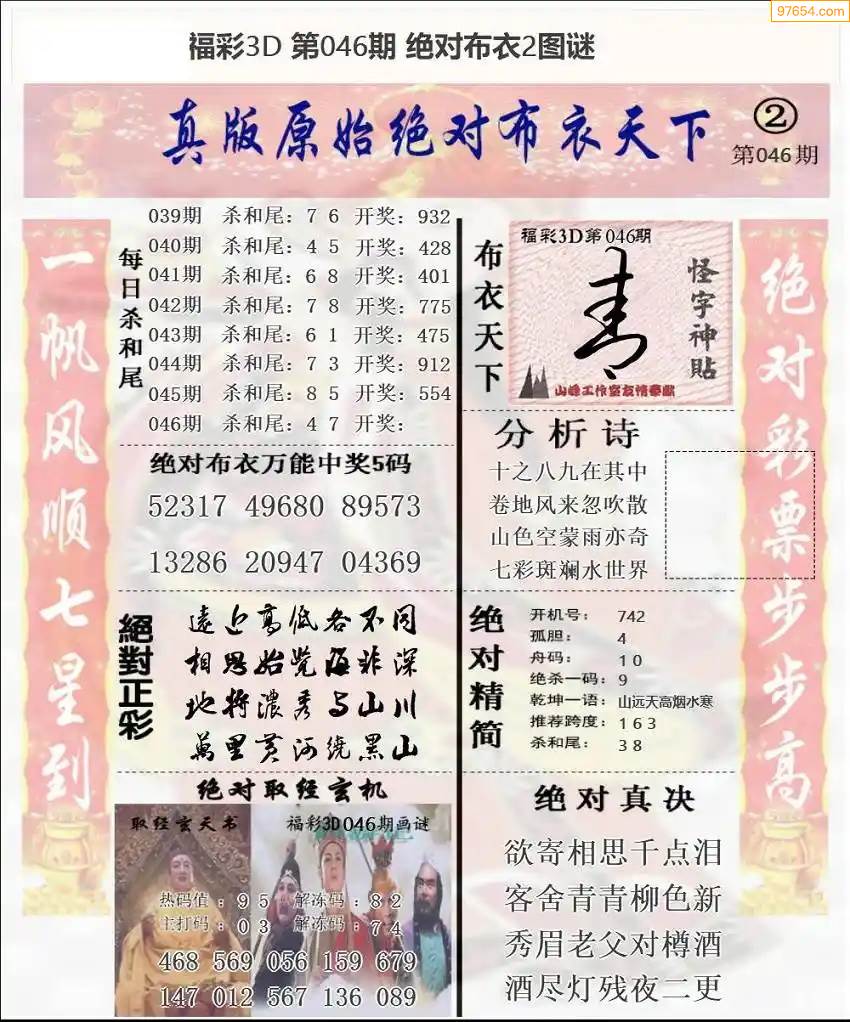 97654.com
福彩3D 第046期 绝对布衣2图谜
真版原始绝对布衣天下
②
第046期
一帆风顺七星到
每日杀和尾
039期 杀和尾：7 6 开奖：932
040期 杀和尾：4 5 开奖：428
041期 杀和尾：6 8 开奖：401
042期 杀和尾：7 8 开奖：775
043期 杀和尾：6 1 开奖：475
044期 杀和尾：7 3 开奖：912
045期 杀和尾：8 5 开奖：554
046期 杀和尾：4 7 开奖：
绝对布衣万能中奖5码
52317 49680 89573
13286 20947 04369
絕對正彩
遠近高低各不同
相思始觉海非深
地将濃秀与山川
萬里黄河绕黑山
绝对取经玄机
取经玄天书
福彩3D046期画谜
热码值：9 5 解冻码：8 2
主打码：0 3 解冻码：7 4
468 569 056 159 679
147 012 567 136 089
布衣天下
福彩3D第046期
怪字神贴
山峰工作室友情奉献
分析诗
十之八九在其中
卷地风来忽吹散
山色空蒙雨亦奇
七彩斑斓水世界
绝对精简
开机号：742
孤胆：4
舟码：1 0
绝杀一码：9
乾坤一语：山远天高烟水寒
推荐跨度：1 6 3
杀和尾：3 8
绝对真决
欲寄相思千点泪
客舍青青柳色新
秀眉老父对樽酒
酒尽灯残夜二更
绝对彩票步步高